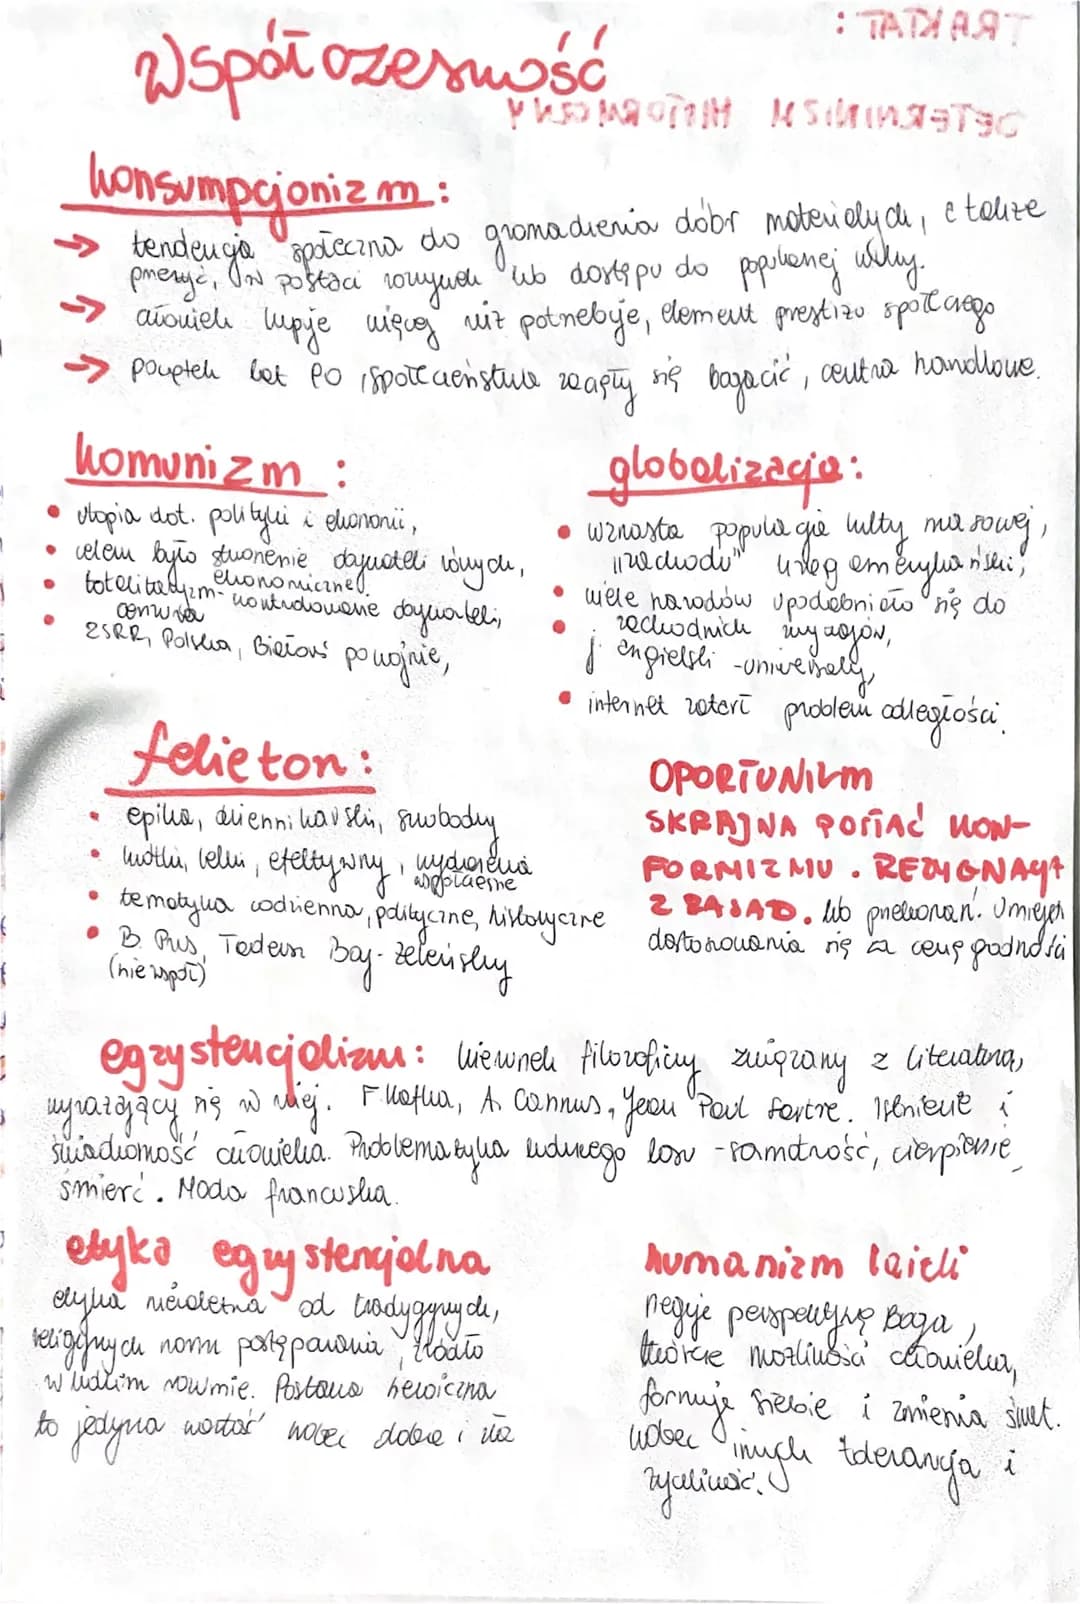 Współczesność
konsumpcjonizm:
→ tendencja społeczna do gromadzenia dóbr materialych, a także
przeżyć, w postaci rozrywek lub dostępu do popularnej kultury.
→ człowiek kupuje więcej niż potrzebuje, element prestiżu społecznego
→ początek lat 60, społeczeństwa zaczęły się bogacić, centra handlowe.
komunizm:
• utopia dot. polityki i ekonomii,
• celem było stworzenie obywateli równych,
ekonomicznie
• totalitaryzm - kontrolowanie obywateli,
cenzura
• ZSRR, Polska, Białoruś powojnie,
globalizacja:
• wzrasta popularyzacja kultury masowej,
"zachodu" amerykański,
• wiele narodów upodobniało się do
zachodnich
• j. angielski - uniwersalny,
• internet zatarł problem odległości.
felieton:
• epika, dziennikarski, swobodny
• krótki, lekki, efektywny, wydarzenia
współczesne
• tematyka codzienna, polityczne, historyczne
• B. Prus, Tadeusz Boy-Żeleński
(nie współ)
OPORTUNIZM
SKRAJNA POSTAĆ KON-
FORMIZMU. REZYGNACJA
Z ZASAD. lub przekonań. Umiejęt
dostosowania się za cenę godności
egzystencjalizm: kierunek filozoficzny związany z literaturą,
wyrażający się w niej. F. Kafka, A. Cammus, Jean Paul Sartre. Istnienie i
świadomość człowieka. Problematyka ludzkiego losu - samotność, cierpienie,
śmierć. Moda francuska.
etyka egzystencjalna
etyka niezależna od tradycyjnych,
religijnych norm postępowania, źródło
w ludzkim rozumie. Postawa heroiczna
to jedyna wartość wobec dobra i zła
humanizm laicki
neguje perspektywę Boga,
twórcze możliwości człowieka,
formuje siebie i zmienia świat.
wobec innych tolerancja i
życzliwość.